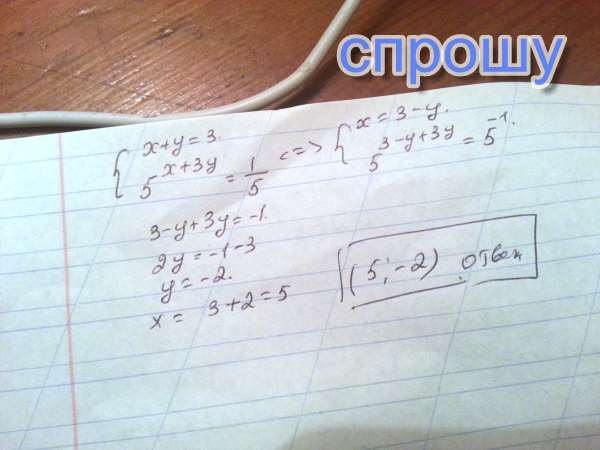 спрошу
{ x+y=3. <=> { x=3-y.
5^{x+3y} = 1/5 5^{3-y+3y} = 5^{-1}.
3-y+3y=-1.
2y=-1-3
y=-2.
x= 3+2=5
(5;-2) ответ